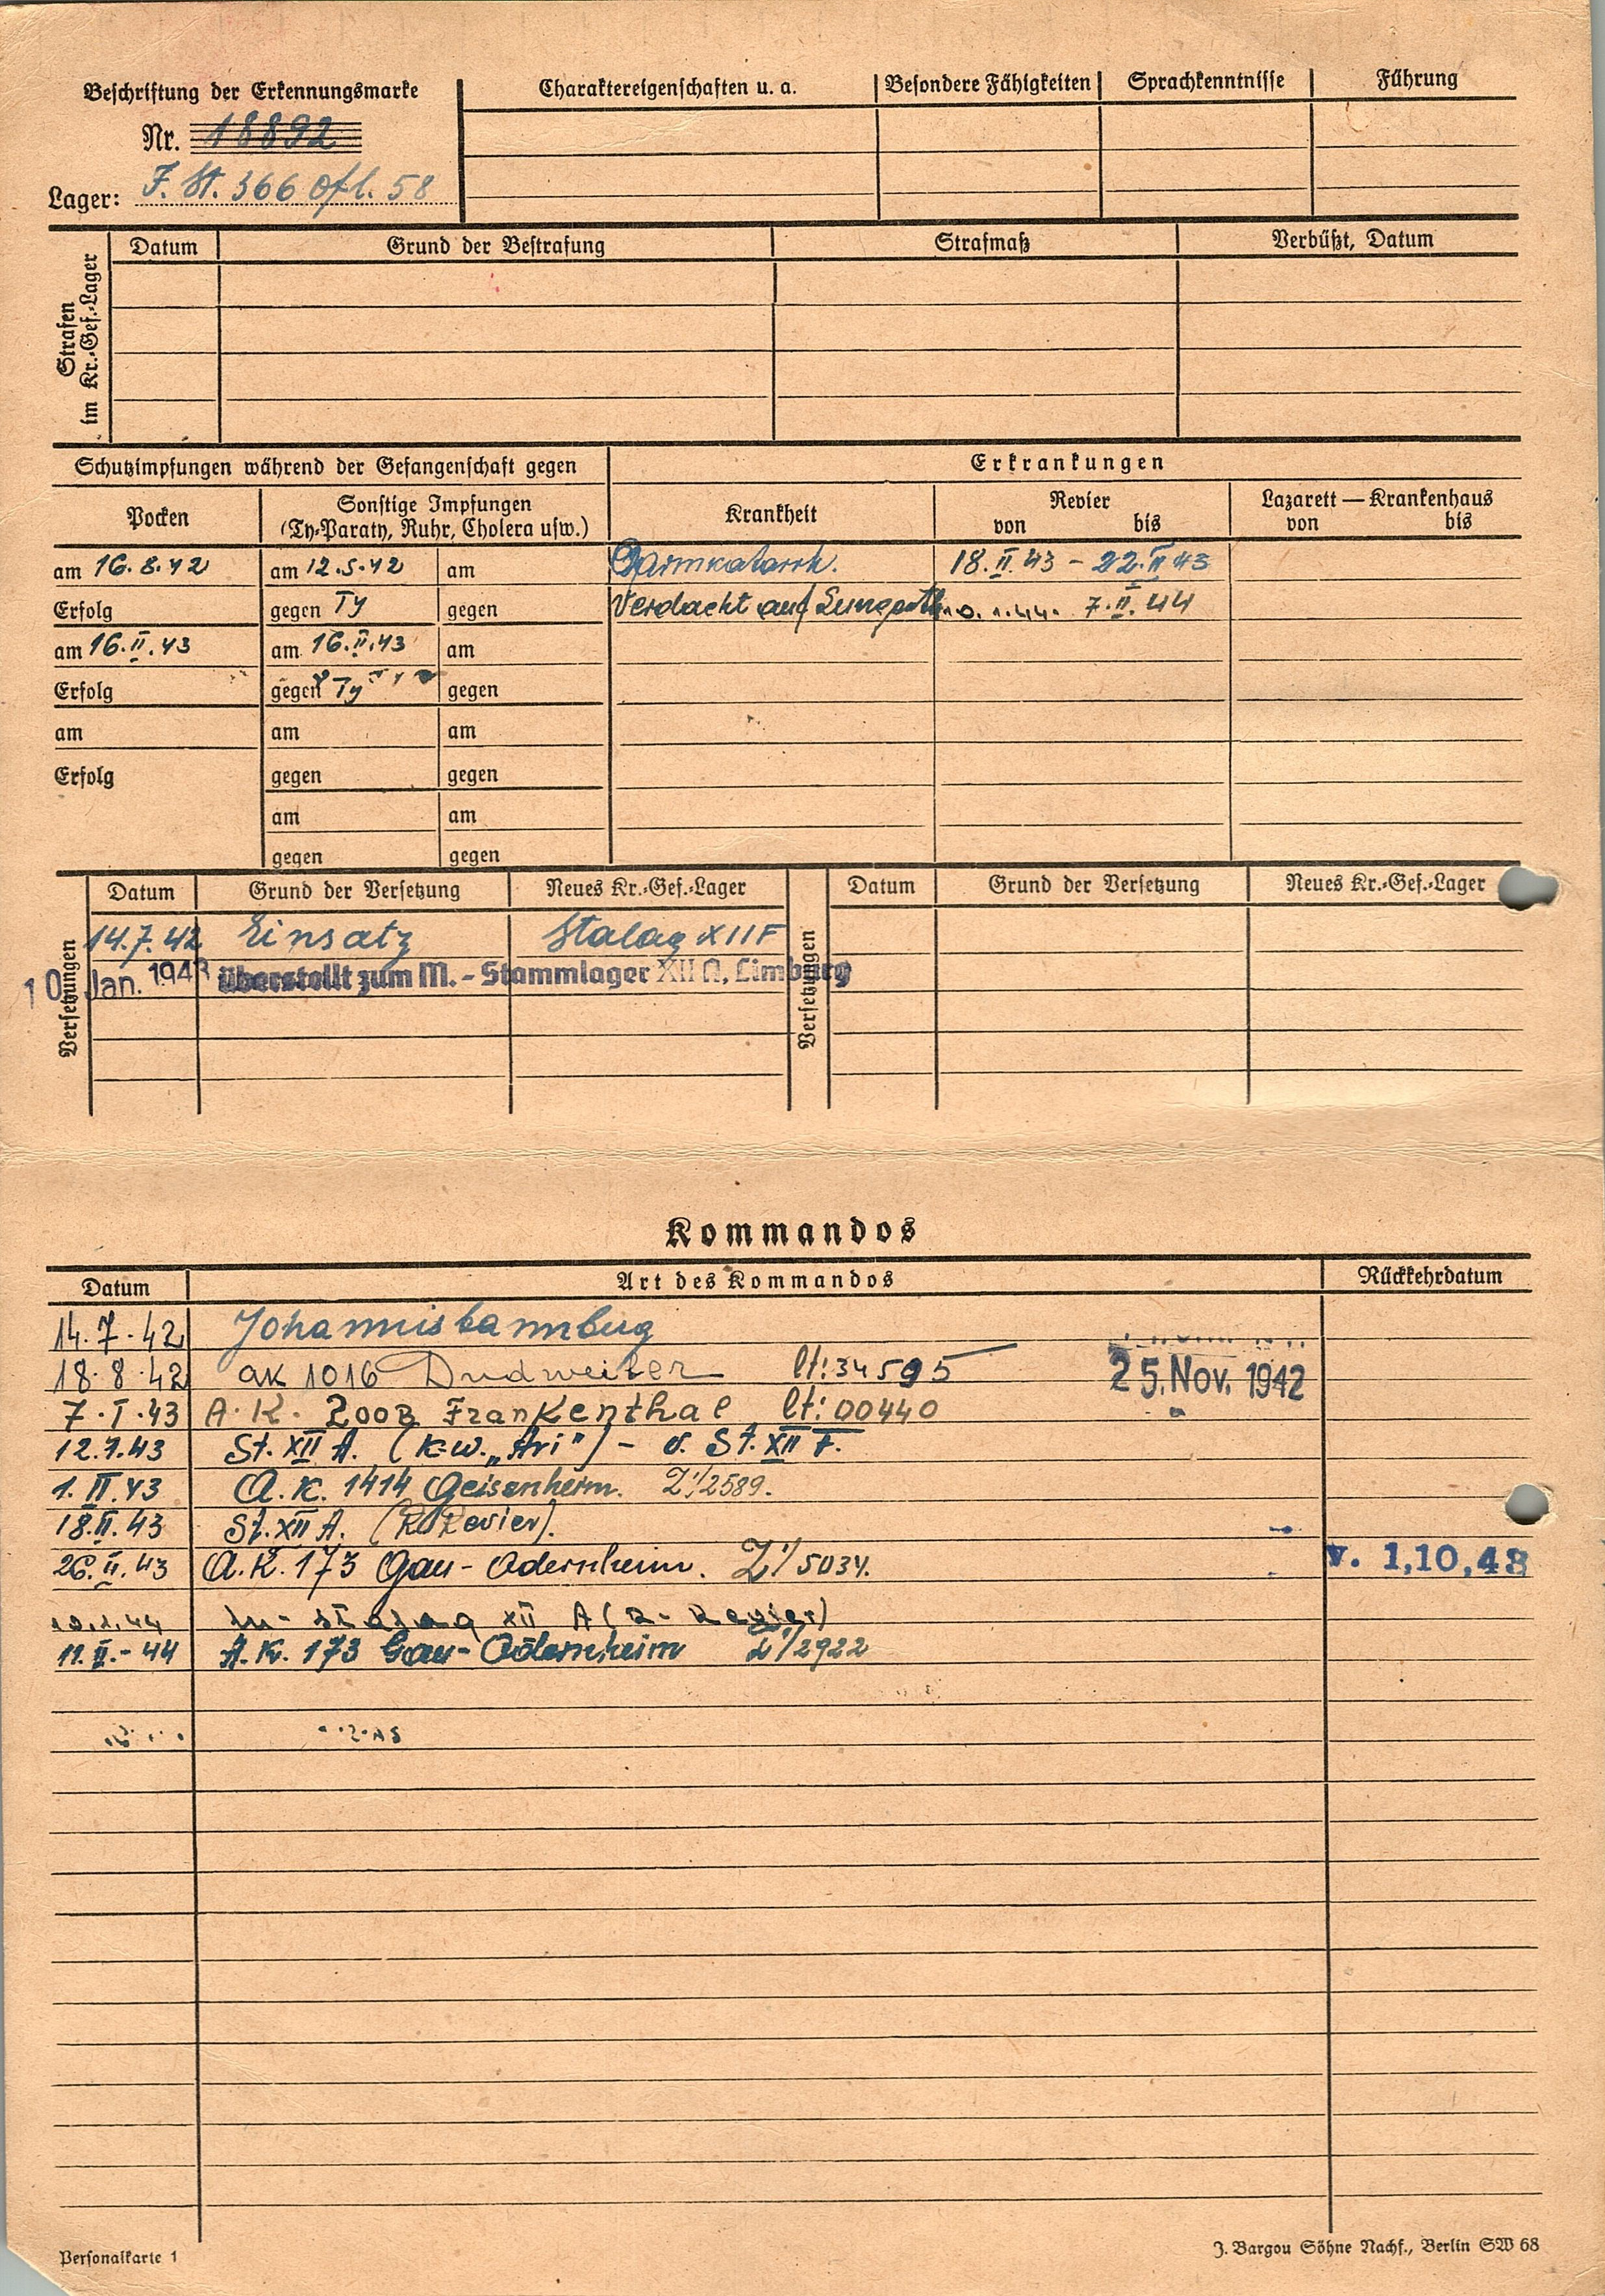 Beschriftung der Erkennungsmarke
Nr. 18892
Lager: F. St. 366 Ofl. 58
Charaktereigenschaften u. a. Besondere Fähigkeiten Sprachkenntnisse Führung
Strafen im Kr.-Gef.-Lager
Datum Grund der Bestrafung Strafmaß Verbüßt, Datum
Schutzimpfungen während der Gefangenschaft gegen Erkrankungen
Pocken Sonstige Impfungen (Ty-Paraty, Ruhr, Cholera usw.) Krankheit Revier von bis Lazarett — Krankenhaus von bis
am 16.8.42 am 12.5.42 am Darmkatarrh. 18.II.43 - 22.II.43
Erfolg gegen Ty gegen Verdacht auf 7.II.44
am 16.II.43 am 16.II.43 am
Erfolg gegen Ty gegen
am am am
Erfolg gegen gegen
am am
gegen gegen
Versetzungen Datum Grund der Versetzung Neues Kr.-Gef.-Lager Versetzungen Datum Grund der Versetzung Neues Kr.-Gef.-Lager
14.7.42 Einsatz Stalag XII F
10. Jan. 1943 überstellt zum M.-Stammlager XII A, Limburg
Kommandos
Datum Art des Kommandos Rückkehrdatum
14.7.42 Johannisbannberg
18.8.42 AK 1016 Dudweiler lt: 34595 25. Nov. 1942
7.I.43 A.K. 200B Frankenthal lt: 00440
12.1.43 St. XII A. (K.W. „Ari") - v. St. XII F.
1.II.43 A.K. 1414 Geisenheim. Z'/2589.
18.II.43 St. XII A. (R. Revier).
26.II.43 A.K. 173 Gau-Odernheim. Z'/5034. v. 1,10,43
10.1.44 M-Stalag XII A (R-Revier)
11.II.-44 A.K. 173 Gau-Odernheim Z'/2922
Personalkarte 1
J. Bargou Söhne Nachf., Berlin SW 68